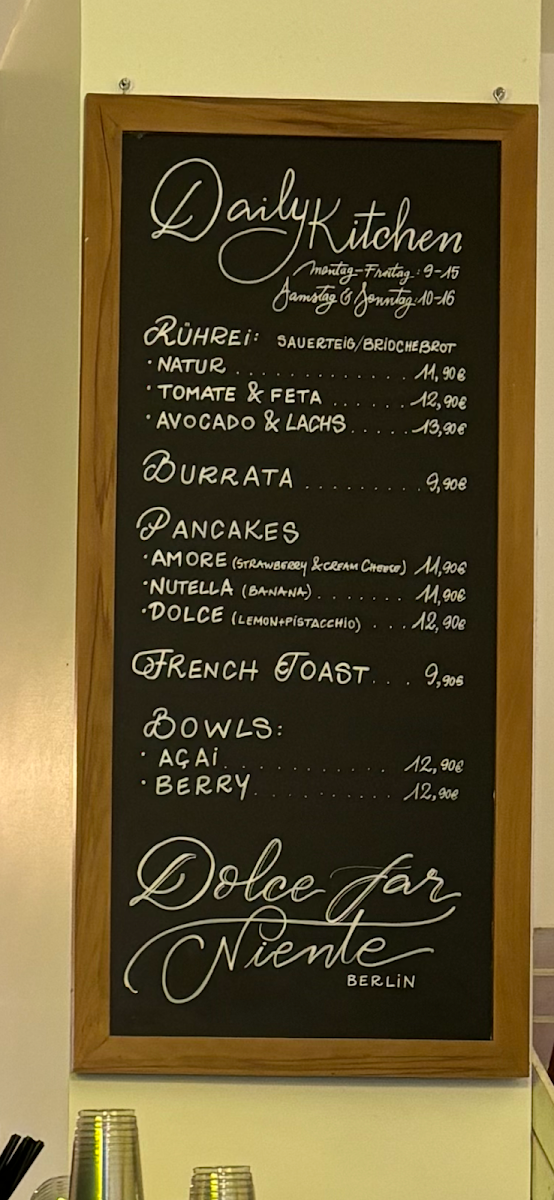 Daily Kitchen
Montag-Freitag: 9-15
Samstag & Sonntag: 10-16
RÜHREi: SAUERTEiG/BRiOCHEBROT
· NATUR . . . . . . . . . . . . 11,90€
· TOMATE & FETA . . . . . . 12,90€
· AVOCADO & LACHS . . . . . 13,90€
BURRATA . . . . . . . . . 9,90€
PANCAKES
· AMORE (STRAWBERRY & CREAM CHEESE) 11,90€
· NUTELLA (BANANA) . . . . . . . 11,90€
· DOLCE (LEMON+PiSTACCHiO) . . . . 12,90€
FRENCH TOAST . . . 9,90€
BOWLS:
· AÇAi . . . . . . . . . . . . 12,90€
· BERRY . . . . . . . . . . 12,90€
Dolce far
Niente
BERLiN